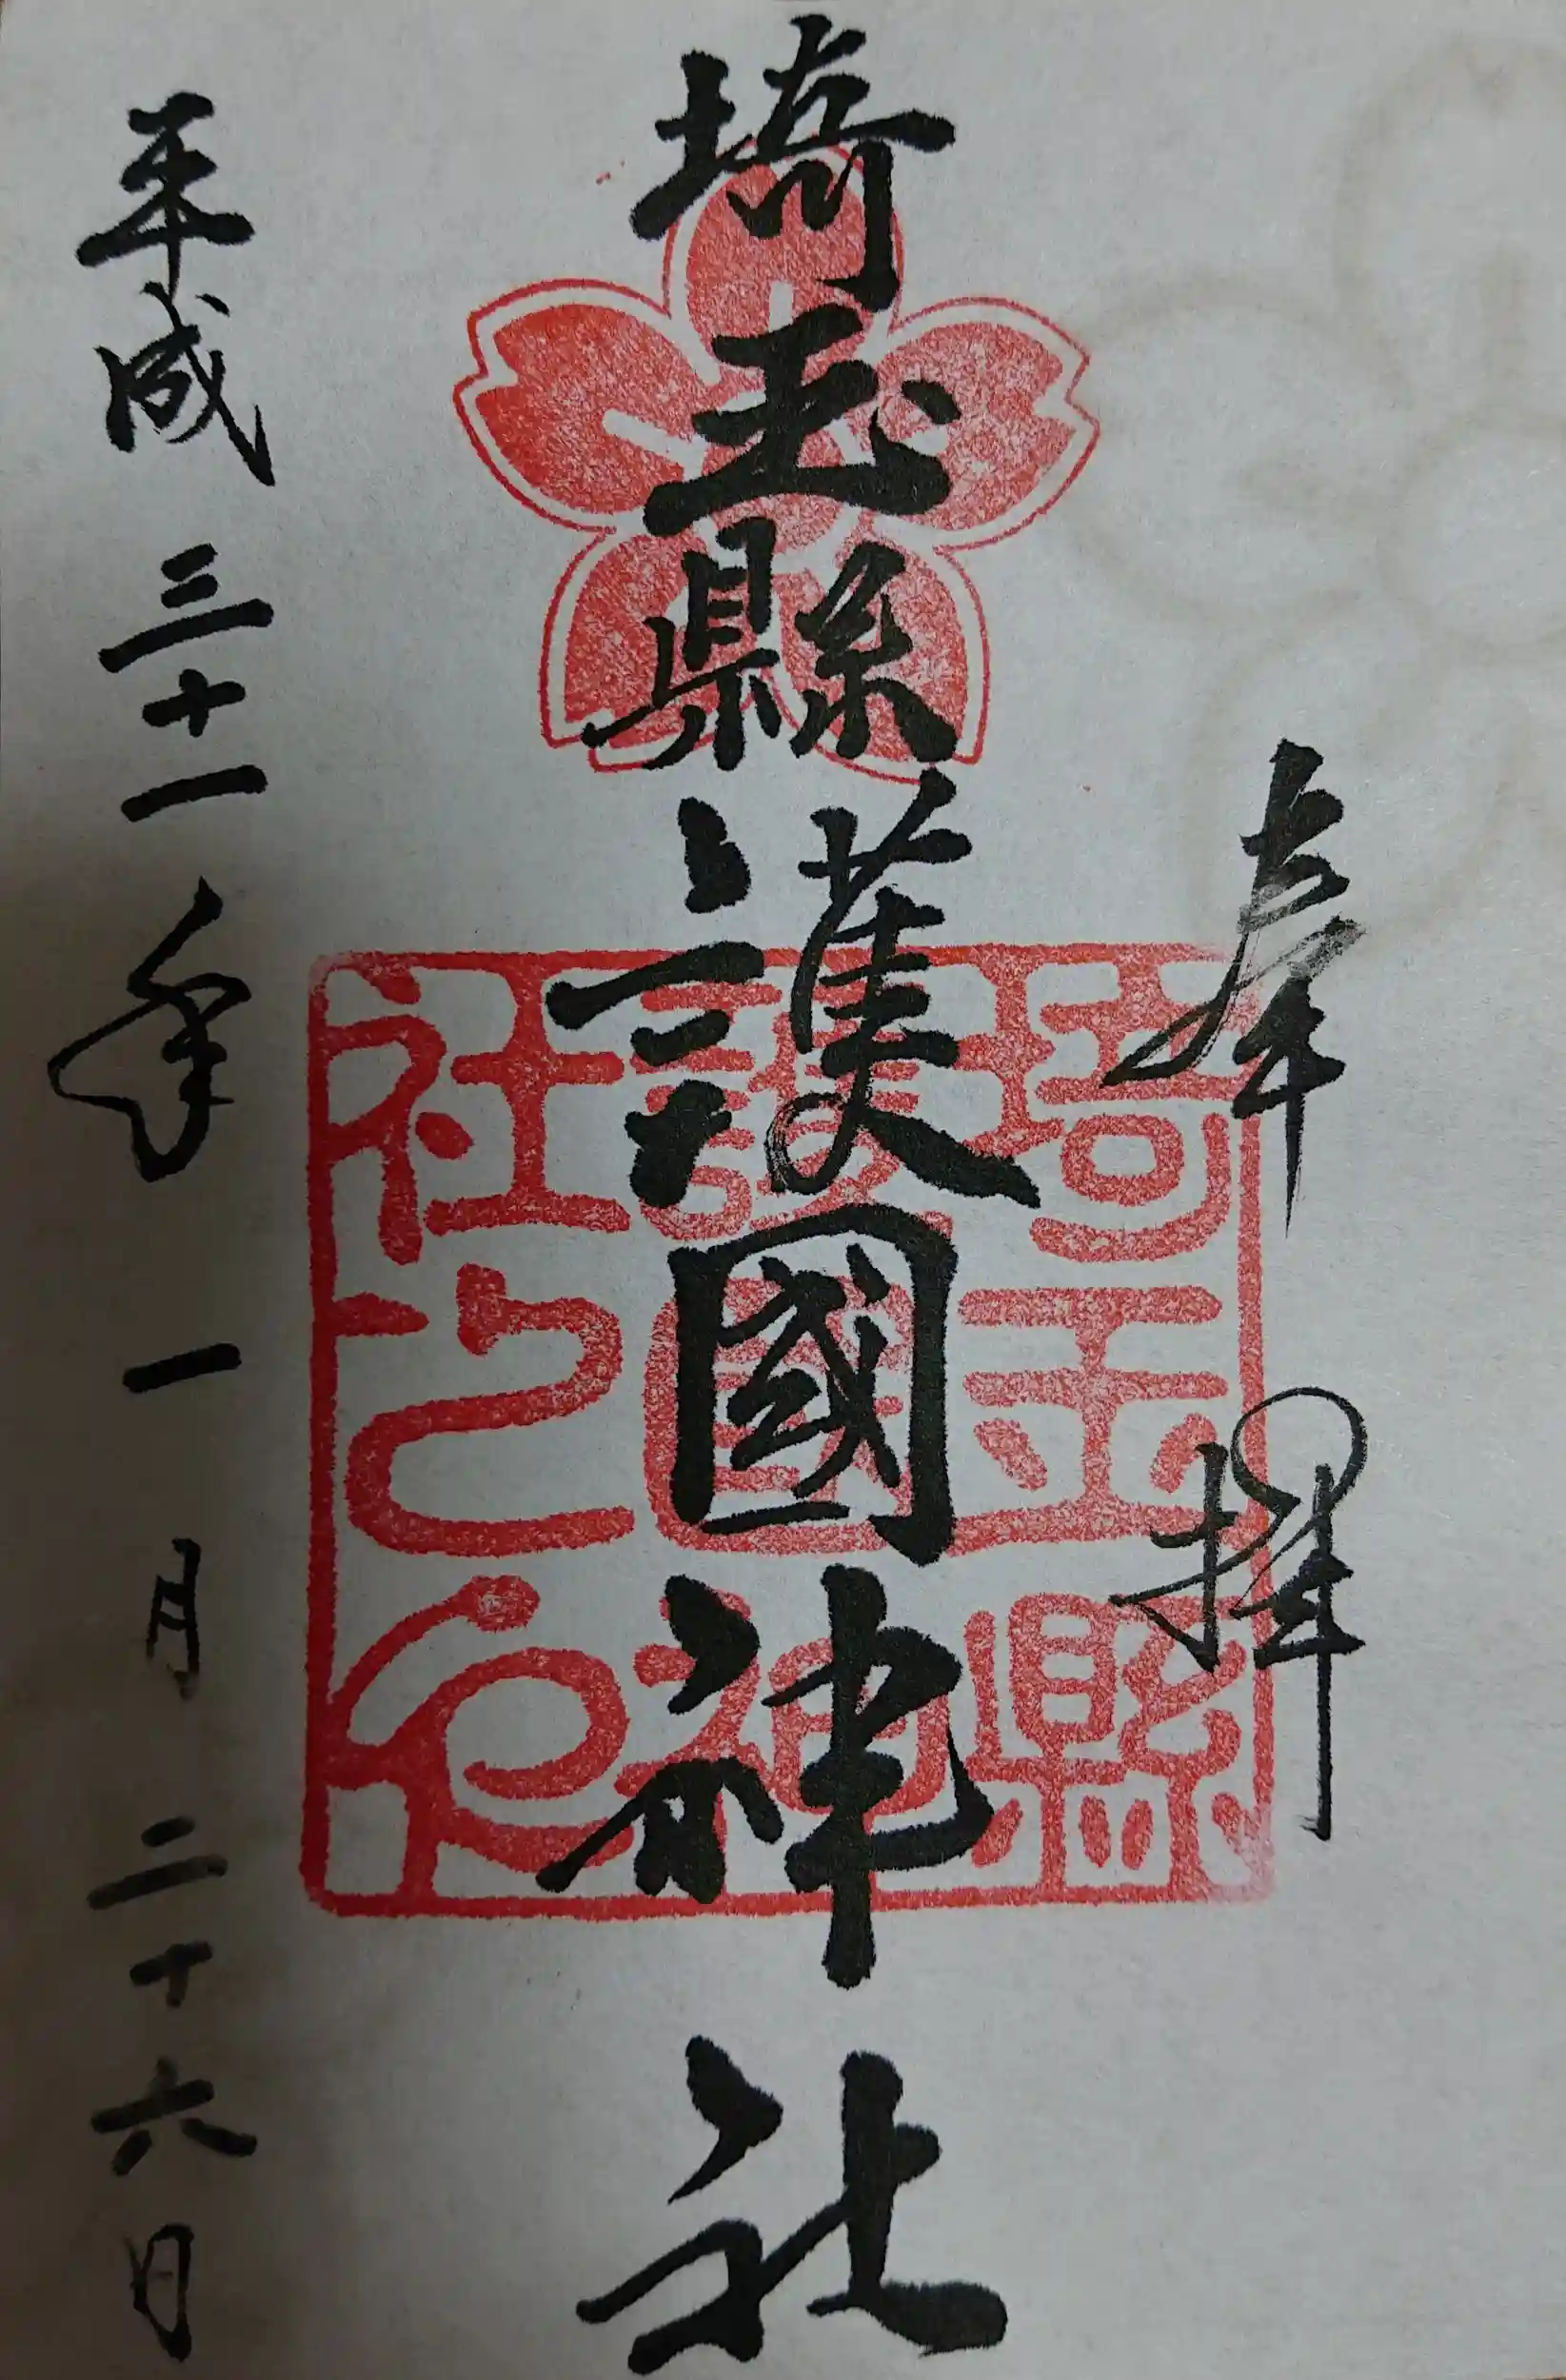 奉拝
埼玉縣護國神社
埼玉縣
護國神
社之印
平成三十一年一月二十六日